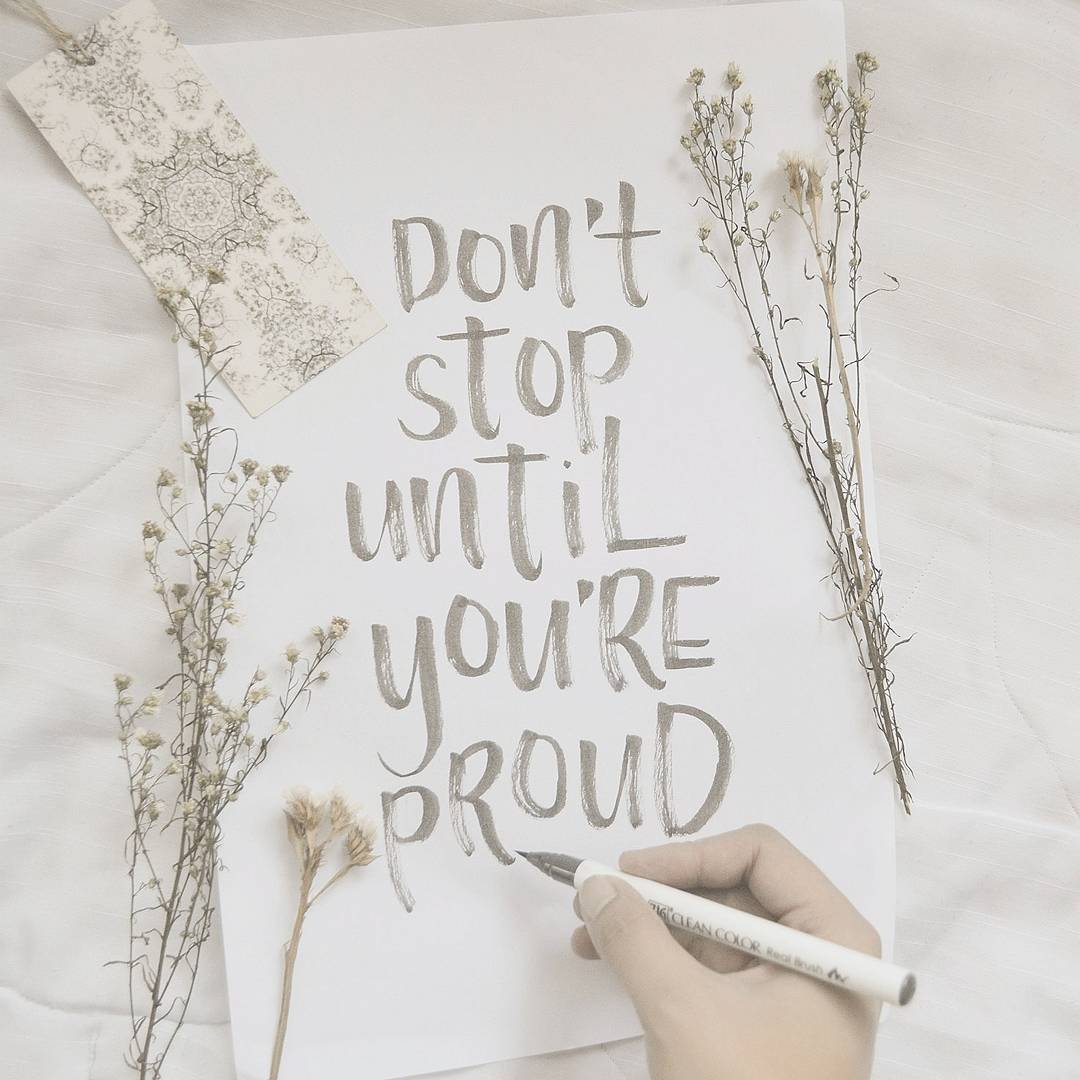 Don't
stop
until
you'RE
PROUD
ZIG CLEAN COLOR Real Brush